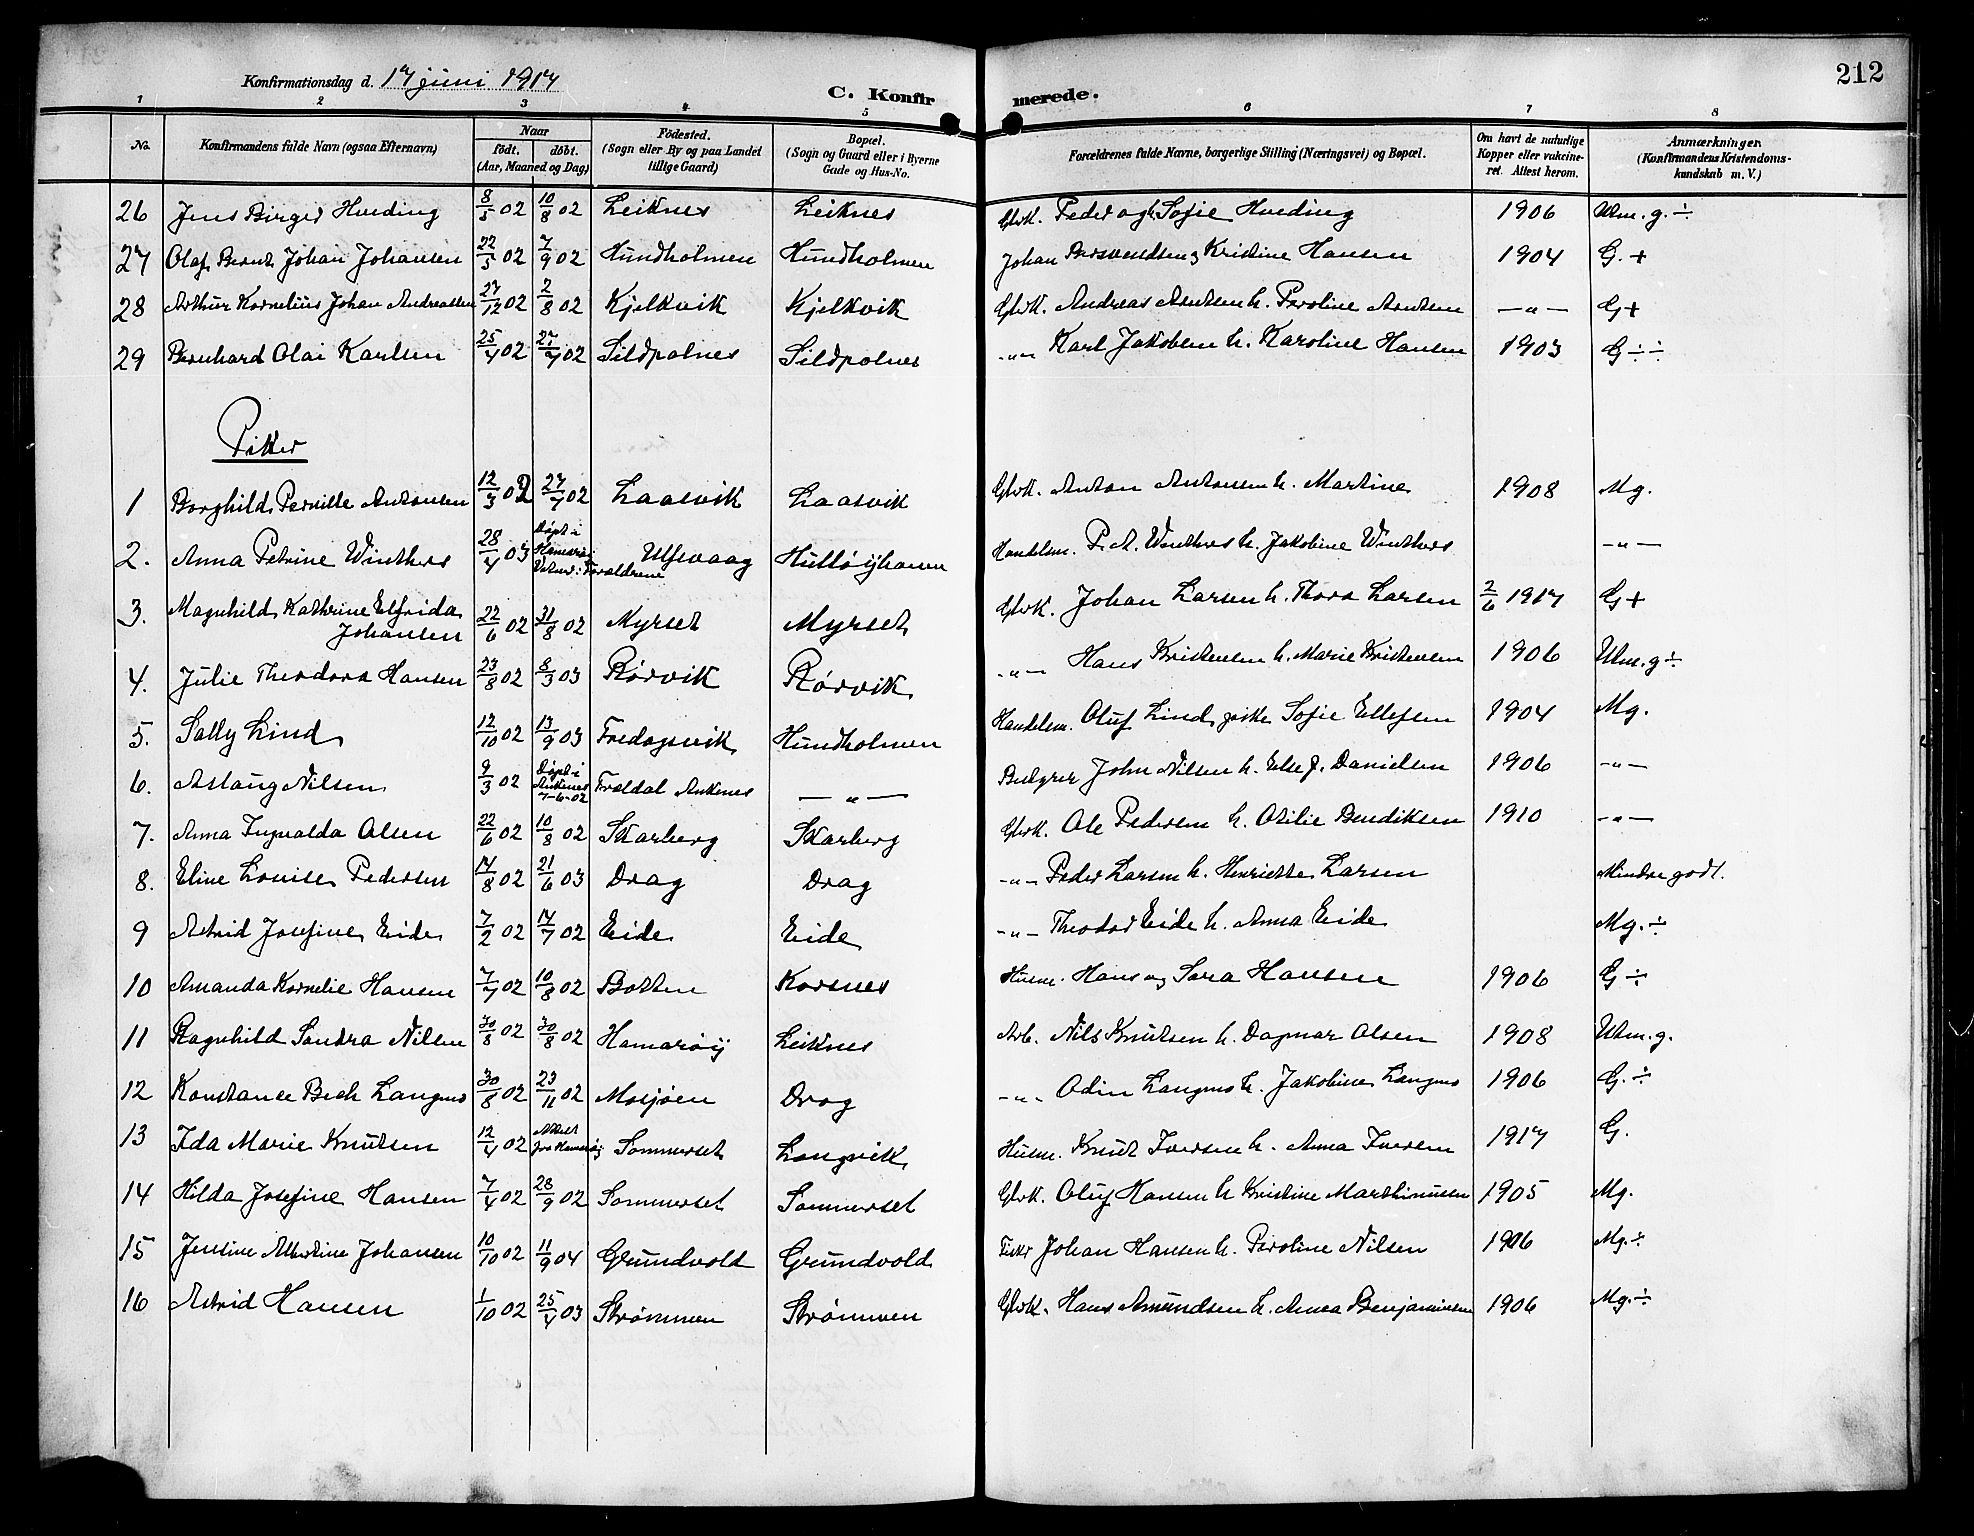 212
Konfirmationsdag d. 17 juni 1917
C. Konfirmerede.
1 2 3 4 5 6 7 8
No. Konfirmandens fulde Navn (ogsaa Efternavn) Naar født. døbt. (Aar, Maaned og Dag) Fødested. (Sogn eller By og paa Landet tillige Gaard) Bopæl. (Sogn og Gaard eller i Byerne Gade og Hus-No. Forældrenes fulde Navne, borgerlige Stilling (Næringsvei) og Bopæl. Om havt de naturlige Kopper eller vakcineret. Attest herom. Anmærkninger. (Konfirmandens Kristendomskundskab m. V.)
26 Jens Birger Hveding 8/5 02 10/8 02 Leiknes Leiknes Gbrk. Peder og Sofie Hveding 1906 Utm. g. ÷
27 Olaf Bernt Johan Johansen 22/5 02 7/9 02 Hundholmen Hundholmen Johan Kristine Hansen 1904 G. +
28 Arthur Kornelius Johan Andreassen 27/12 02 2/8 02 Kjelkvik Kjelkvik Gbrk. Andreas Arntsen h. Peroline Arntsen — „ — G +
29 Bernhard Olai Karlsen 25/4 02 27/7 02 Sildpolnes Sildpolnes - „ - Karl Jakobsen h. Karoline Hansen 1903 G ÷ ÷
Piker
1 Borghild Pernille Antonsen 12/3 02 27/7 02 Laasvik Laasvik Gbrk. Anton Antonsen h. Martine 1908 Mg.
2. Anna Petrine Winthers 28/4 03 Døpt i Hamarøy Ulfsvaag Hulløyhamn Handelsm. P. A. Winthers h. Jakobine Winthers - „ -
3. Magnhild Kathrine Elfrida Johansen 22/6 02 31/8 02 Myrset Myrset Gbrk. Johan Larsen h. Thora Larsen 2/6 1917 G +
4. Julie Theodora Hansen 23/8 02 8/3 03 Rørvik Rørvik - „ - Hans Kristensen h. Marie Kristensen 1906 Utm. g ÷
5. Sally Lind 12/10 02 13/9 03 Fredagsvik Hundholmen Handelsm. Oluf Lind, pike Sofie Ellefsen 1904 Mg.
6. Aslaug Nilsen 9/3 02 Døpt i Ankenes 7-6-02 Frældal Ankenes — „ — John Nilsen h. Else J. Danielsen 1906 - „ -
7. Anna Ingvalda Olsen 22/6 02 10/8 02 Skarberg Skarberg Gbrk. Ole Pedersen h. Otilie Bendiksen 1910 - „ -
8. Eline Louise Pedersen 14/8 02 21/6 03 Drag Drag - „ - Peder Larsen h. Henriette Larsen Mindre godt.
9 Astrid Josefine Eide 7/2 02 14/7 02 Eide Eide - „ - Theodor Eide h. Anna Eide Mg. ÷
10 Amanda Kornelie Hansen 7/7 02 10/8 02 Botten Korsnes Husm. Hans og Sara Hansen 1906 G ÷
11 Ragnhild Sandra Nilsen 30/8 02 30/8 02 Hamarøy Leiknes Arb. Nils Knutsen h. Dagmar Olsen 1908 Utm. g.
12 Konstance Bech Langmo 30/8 02 23/11 02 Mosjøen Drag - „ - Odin Langmo h. Jakobine Langmo 1906 G. ÷
13 Ida Marie Knutsen 12/4 02 Attest fra Hamarøy Sommerset Langvik Husm. Knut Iversen h. Anna Iversen 1917 G.
14 Hilda Josefine Hansen 7/4 02 28/9 02 Sommerset Sommerset Gbrk. Oluf Hansen h Kristine Marthinusen 1905 Mg.
15 Jensine Albertine Johansen 10/10 02 11/9 04 Grundvold Grundvold Fisker Johan Hansen h. Peroline Nilsen 1906 Mg. ÷
16 Astrid Hansen 1/10 02 25/4 03 Strømmen Strømmen Gbrk. Hans Amundsen h. Anna Benjaminsen 1906 Mg. ÷